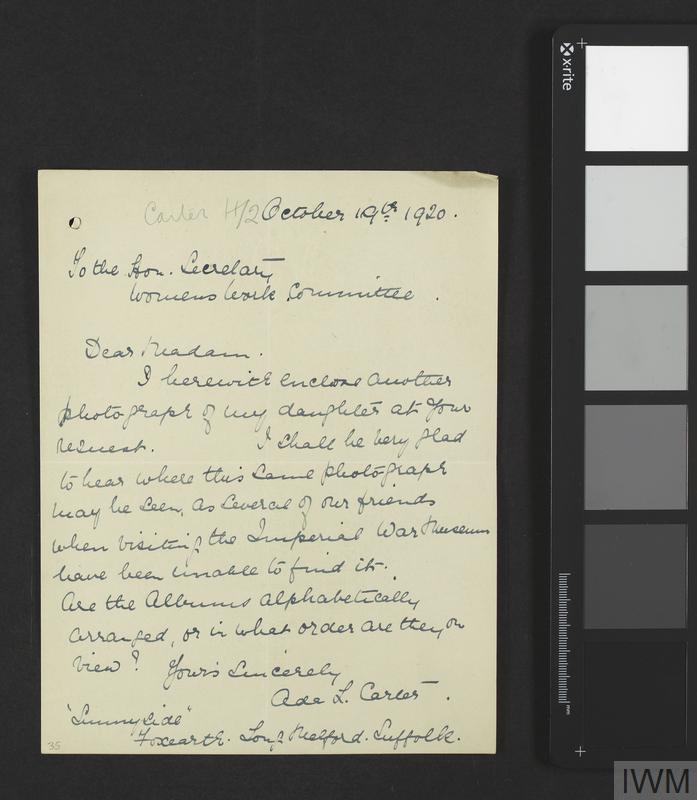 Carter H/2 October 19th 1920.
To the Hon. Secretary
Womens Work Committee.
Dear Madam.
I herewith enclose another
photograph of my daughter at your
request. I shall be very glad
to hear where this same photograph
may be seen, as several of our friends
when visiting the Imperial War Museum
have been unable to find it.
Are the Albums alphabetically
arranged, or in what order are they on
view? Yours Sincerely
Ada L. Carter.
"Sunnyside"
Foxearth. Long Melford. Suffolk.
35
x-rite
mm
IWM